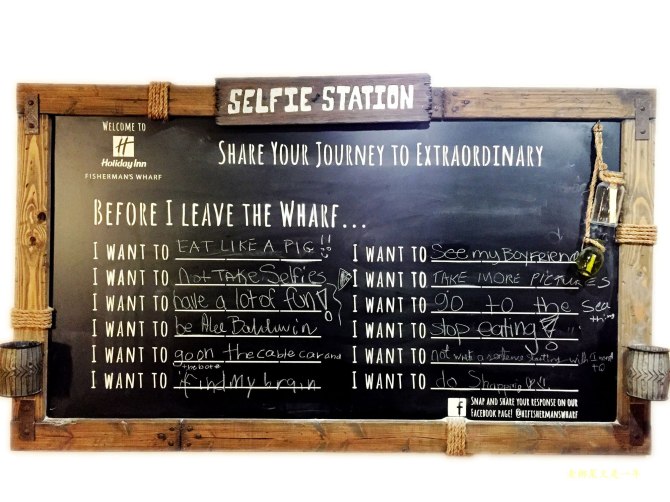 SELFIE STATION
WELCOME TO
H
Holiday Inn
FISHERMAN'S WHARF
SHARE YOUR JOURNEY TO EXTRAORDINARY
BEFORE I LEAVE THE WHARF...
I WANT TO EAT LIKE A PIG!!
I WANT TO not TAKE Selfies
I WANT TO have a lot of fun!
I WANT TO be Alec Baldwin
I WANT TO go on the cable car and
the boat
I WANT TO find my brain
I WANT TO See my Boyfriend
I WANT TO TAKE MORE PICTURES
I WANT TO go to the sea
thing
I WANT TO stop eating!
I WANT TO not write a sentence starting with I want
to
I WANT TO do Shopping
f
SNAP AND SHARE YOUR RESPONSE ON OUR
FACEBOOK PAGE! @HIFISHERMANSWHARF